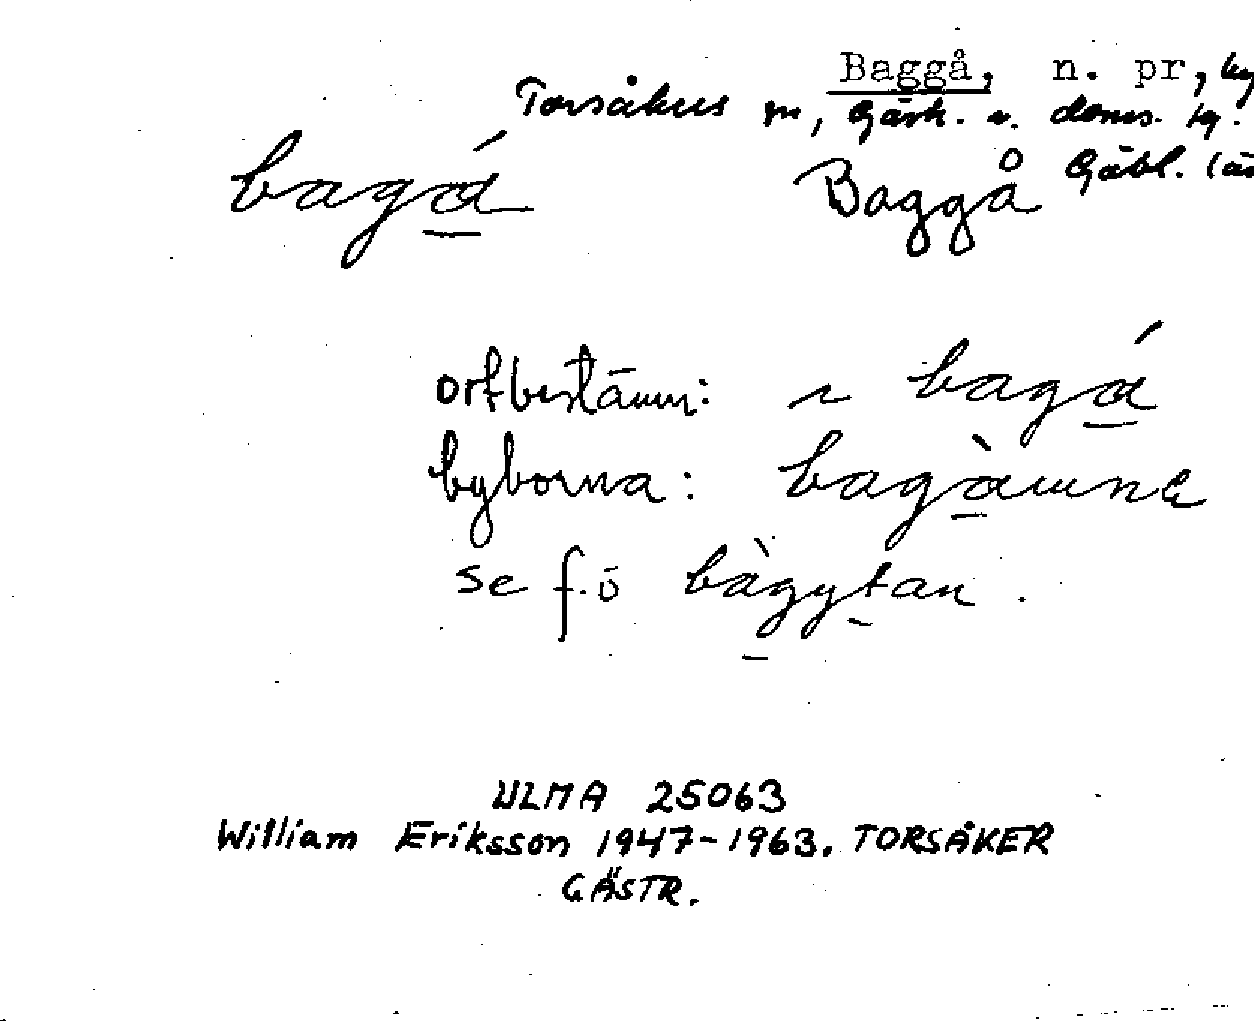 Baggå, n. pr, by
Torsåkers sn, Gästr. ö. doms. tg.
Gävl. län
bagá Baggå
ortbestämn: ~ bagá
byborna: bagàmna
se f.ö bàgytan.
ULMA 25063
William Eriksson 1947-1963. TORSÅKER
GÄSTR.